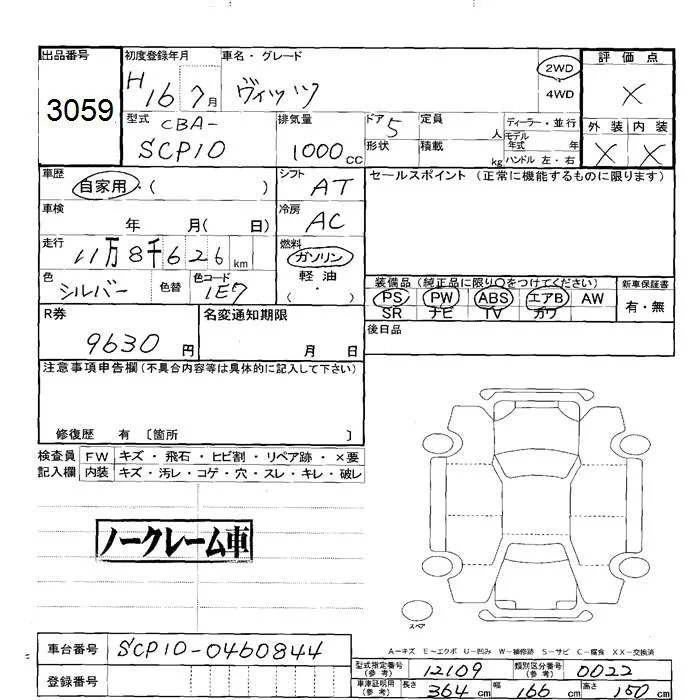 出品番号
3059
初度登録年月
H 16 7月
車名・グレード
ヴィッツ
2WD
4WD
評価点
X
外装 内装
X X
型式
CBA-
SCP10
排気量
1000cc
ドア
5
形状
定員
人
積載
kg
ディーラー・並行
モデル
年式 年
ハンドル 左・右
車歴
自家用・( )
シフト
AT
セールスポイント (正常に機能するものに限ります)
車検
年 月( 日)
冷房
AC
走行
11万8千626km
燃料
ガソリン
軽油
( ・ )
色
シルバー
色替
色コード
1E7
装備品 (純正品に限り○をつけてください)
PS PW ABS エアB AW
SR ナビ TV カワ
新車保証書
有・無
R券
9630円
名変通知期限
月 日
後日品
注意事項申告欄(不具合内容等は具体的に記入して下さい)
修復歴 有 〔箇所 〕
検査員
記入欄
FW キズ・飛石・ヒビ割・リペア跡・×要
内装 キズ・汚レ・コゲ・穴・スレ・キレ・破レ
ノークレーム車
スペア
A-キズ E-エクボ U-凹み W-補修跡 S-サビ C-腐食 XX-交換済
車台番号
SCP10-0460844
登録番号
型式指定番号
(参考)
12109
類別区分番号
(参考)
0022
車庫証明用
(参考)
長さ 364cm
幅 166cm
高さ 150cm